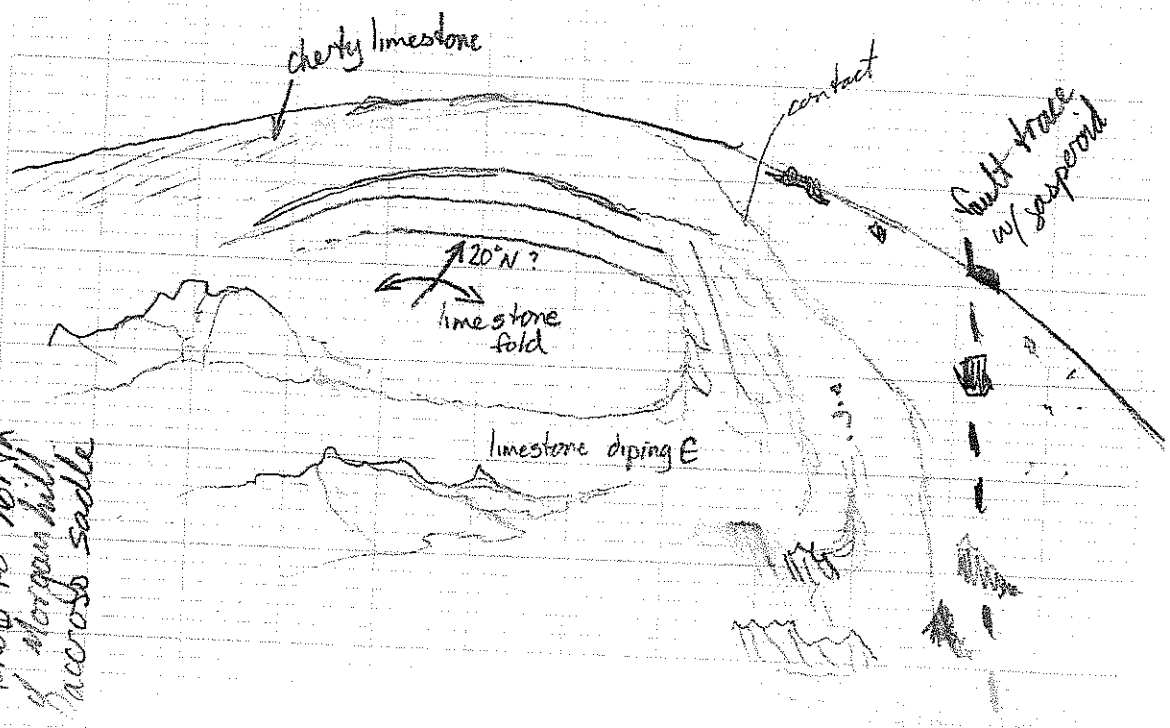 cherty limestone
contact
fault trace
w/ jasperoid
20°N ?
limestone
fold
limestone diping E
to north
Morgan hill
accross sadle